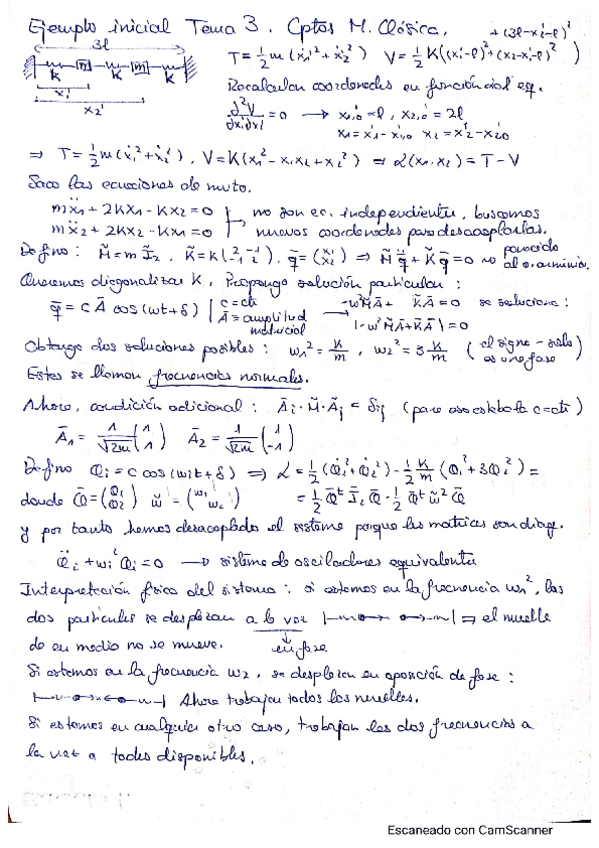 Ejemplo inicial Tema 3. Cptos M. Clásica. + (3l-x₂'-l)²
3l
T = 1/2 m (ẋ₁'² + ẋ₂'²) V = 1/2 K((x₁'-l)² + (x₂-x₁'-l)² )
K m K m K
x₁'
x₂'
Recalculan coordenadas en función del eq.
∂²V/∂xi'∂xj' = 0 → x₁,₀' = l, x₂,₀' = 2l
x₁ = x₁' - x₁,₀' x₂ = x₂' - x₂₀
⇒ T = 1/2 m (ẋ₁² + ẋ₂²), V = K(x₁² - x₁x₂ + x₂²) ⇒ L(x₁,x₂) = T - V
Saco las ecuaciones de mvto.
mẍ₁ + 2Kx₁ - Kx₂ = 0
mẍ₂ + 2Kx₂ - Kx₁ = 0
no son ec. independientes, buscamos
nuevas coordenadas para desacoplarlas.
Defino: M̃ = m I₂, K̃ = K(2 -1 -1 2), q̄ = (x₁ x₂) ⇒ M̃ q̄̈ + K̃ q̄ = 0 → parecido
al o. armónico.
Queremos diagonalizar K. Propongo solución particular:
q̄ = c Ā cos(ωt + δ) | c = cte
Ā = amplitud
matricial
→ -ω²M̃Ā + K̃Ā = 0 se soluciona:
|-ω²M̃Ā + K̃Ā| = 0
Obtengo dos soluciones posibles: ω₁² = K/m, ω₂² = 3 K/m (el signo - solo
es una fase)
Estas se llaman frecuencias normales.
Ahora, condición adicional: Āi · M̃ · Āj = δij (para eso estaba la c = cte)
Ā₁ = 1/√2m (1 1) Ā₂ = 1/√2m (1 -1)
Defino Qi = c cos(ωit + δ) ⇒ L = 1/2 (Q̇₁² + Q̇₂²) - 1/2 K/m (Q₁² + 3Q₂²) =
donde Q̄ = (Q₁ Q₂) ω̃ = (ω₁ ω₂) = 1/2 Q̄ᵗ I₂ Q̄ - 1/2 Q̄ᵗ ω̃² Q̄
y por tanto hemos desacoplado el sistema porque las matrices son diag.
Q̈i + ωi² Qi = 0 → sistema de osciladores equivalente
Interpretación física del sistema: si estamos en la frecuencia ω₁², las
dos partículas se desplazan a la vez ⇒ el muelle
de en medio no se mueve. en fase
Si estamos en la frecuencia ω₂, se desplazan en oposición de fase:
Ahora trabajan todos los muelles.
Si estamos en cualquier otro caso, trabajan las dos frecuencias a
la vez o todas disponibles.
Escaneado con CamScanner